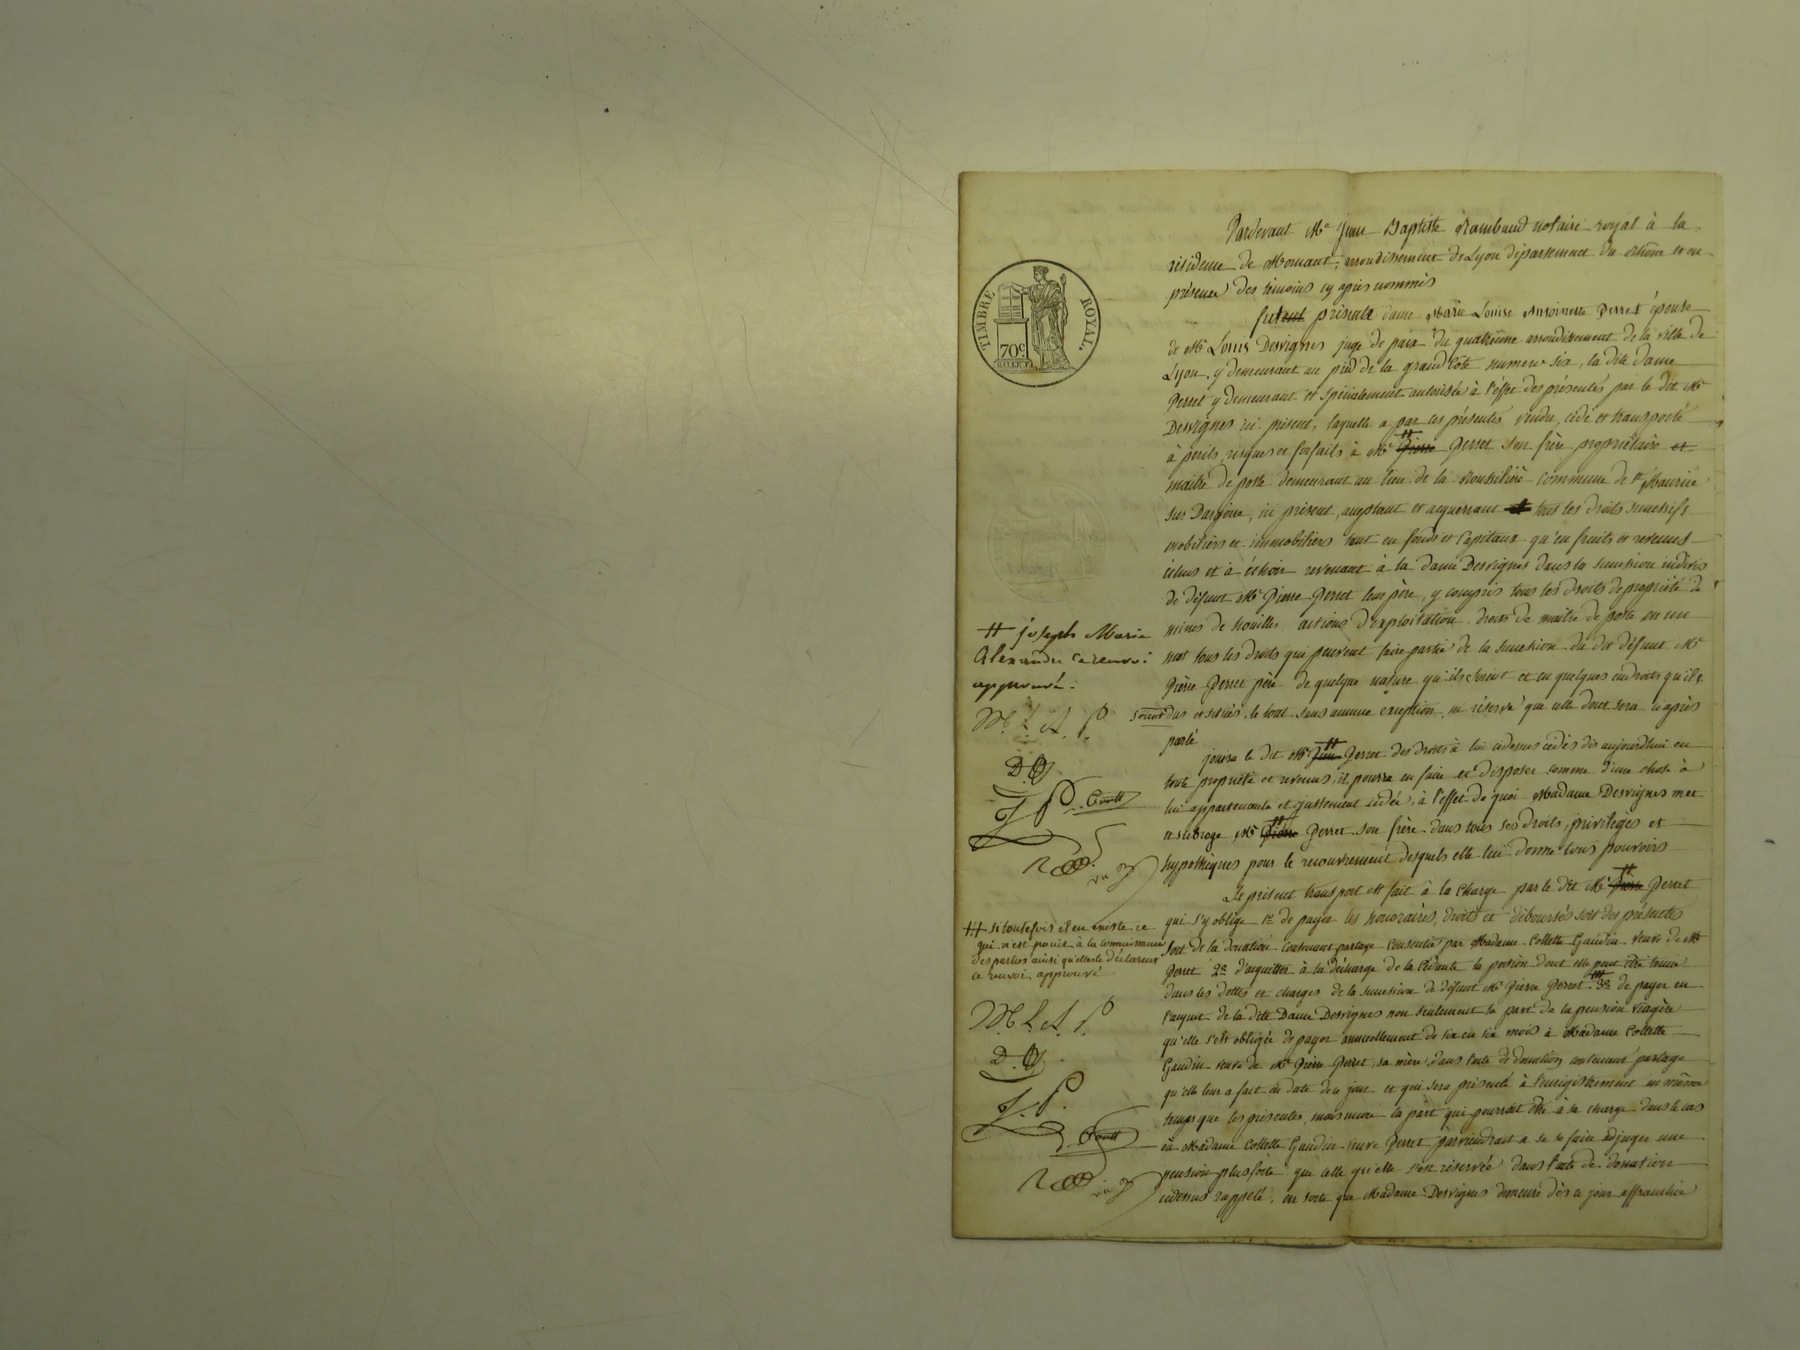 Pardevant Me Jean Baptiste Rambaud notaire royal à la
résidence de Mornant, arrondissement de Lyon département du Rhône et en
présence des témoins cy après nommés
TIMBRE ROYAL.
70c.
fut présente dame Marie Louise Antoinette Perret épouse
de Mr Louis Desvignes juge de paix du quatrième arrondissement de la ville de
Lyon, y demeurant au pied de la grand Côte numero six, la dite dame
Perret y demeurant et spécialement autorisée à l'effet des présentes par le dit Mr
Desvignes ici présent, laquelle a par ces présentes vendu, cédé et transporté
à périls, risques et forfaits à Mr Pierre Perret son frère propriétaire et
maître de poste demeurant au lieu de la Roussilière commune de St Maurice
sur Dargoire, ici présent, acceptant et acquérant tous les droits successifs
mobiliers et immobiliers tant en fonds et Capitaux qu'en fruits et revenus
échus et à échoir revenant à la dame Desvignes dans la succession indivise
de défunt Mr Pierre Perret leur père, y compris tous les droits de propriété de
mines de houilles actions d'exploitation, droits de maître de poste en un
mot tous les droits qui peuvent faire partie de la succession du dit défunt Mr
Pierre Perret père de quelque nature qu'ils soient et en quelques endroits qu'ils
soient dus et situés, le tout sans aucune exception, ni réserve que celle dont sera ci après
parlé
# joseph Marie
Alexandre ce renvoi
approuvé.
M. L. A. P.
D. L.
J. P.
jouira le dit Mr Pierre Perret des droits à lui cidessus cédés dès aujourdhui en
toute propriété et revenus, il pourra en faire et disposer comme d'une chose à
lui appartenante et justement cédée, à l'effet de quoi Madame Desvignes met
et subroge Mr Pierre Perret son frère dans tous ses droits, privilèges et
hypothèques pour le recouvrement desquels elle lui donne tous pouvoirs
Le présent transport est fait à la Charge par le dit Mr Pierre Perret
qui s'y oblige 1° de payer les honoraires, droits et déboursés soit des présentes
soit de la donation contenant partage consentie par Madame Collette Gaudin veuve de Mr
Perret 2° d'acquitter à la décharge de la Cédante la portion dont elle peut être tenue
dans les dettes et charges de la succession de défunt Mr Pierre Perret. 3° de payer en
l'acquit de la dite Dame Desvignes non seulement sa part de la pension viagère
qu'elle s'est obligée de payer annuellement de six en six mois à Madame Collette
Gaudin veuve de Mr Pierre Perret, sa mère, dans l'acte de donation contenant partage
qu'elle leur a fait en date de ce jour et qui sera présenté à l'enregistrement en même
temps que les présentes, mais encore la part qui pourrait être à sa charge dans le cas
où Madame Collette Gaudin veuve Perret parviendrait à se faire adjuger une
pension plus forte que celle qu'elle s'est réservée dans l'acte de donation
cidessus rappelé, en sorte que Madame Desvignes demeure dès ce jour affranchie
## si toutefois il en existe ce
qui n'est point à la connaissance
des parties ainsi qu'elles le déclarent
ce renvoi approuvé
M. L. A. P.
D. L.
J. P.